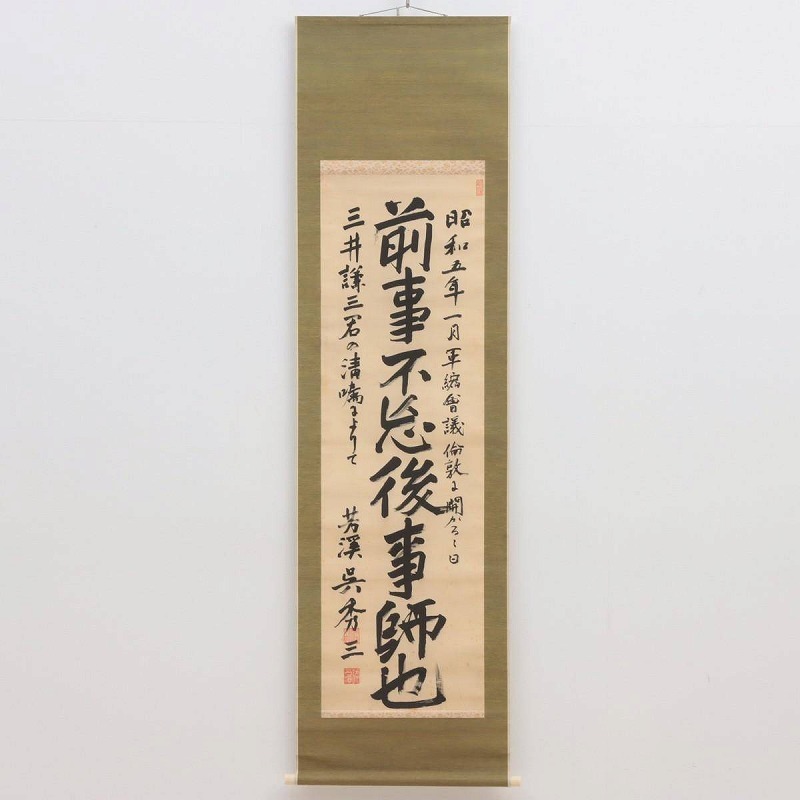 昭和五年一月軍縮會議倫敦に開かるゝ日
前事不忘後事師也
三井謙三君の清嘱によりて
芳溪呉秀三